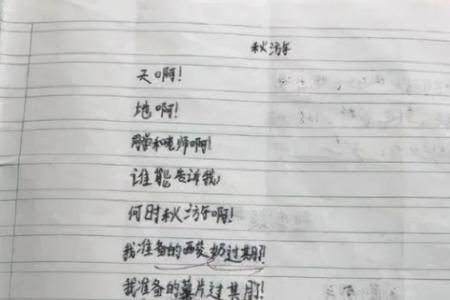 秋游
天啊!
地啊!
同学和老师啊!
谁能告诉我,
何时秋游啊!
我准备的酸奶过期了!
我准备的薯片过期了!